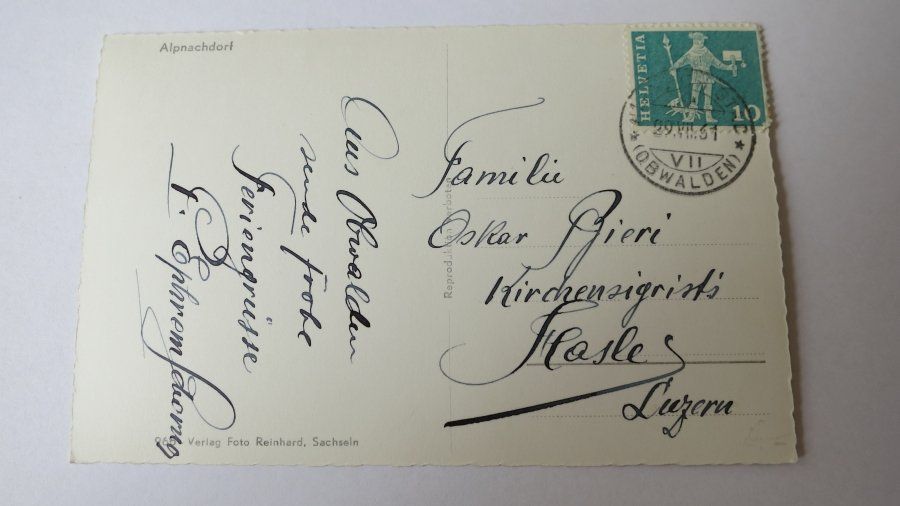 Alpnachdorf
Aus Obwalden
sende frohe
Feriengrüsse
Verlag Foto Reinhard, Sachseln
Reproduktion verboten
HELVETIA
10
29.VII.61
VII
(OBWALDEN)
Familie
Oskar Bieri
Kirchensigrists
Hasle
Luzern